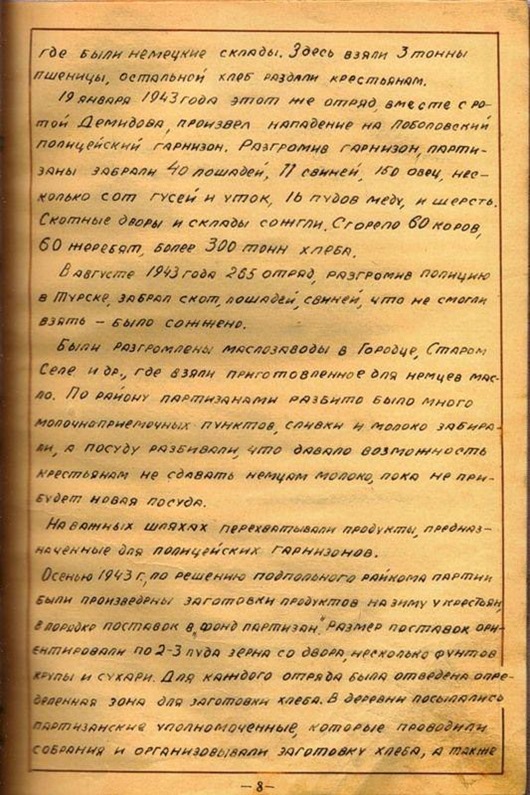 где были немецкие склады. Здесь взяли 3 тонны
пшеницы, остальной хлеб раздали крестьянам.
19 января 1943 года этот же отряд, вместе с ро-
той Демидова, произвел нападение на Лоболовский
полицейский гарнизон. Разгромив гарнизон, парти-
заны забрали 40 лошадей, 11 свиней, 150 овец, нес-
колько сот гусей и уток, 16 пудов меду, и шерсть.
Скотные дворы и склады сожгли. Сгорело 60 коров,
60 жеребят, более 300 тонн хлеба.
В августе 1943 года 265 отряд, разгромив полицию
в Турске, забрал скот, лошадей, свиней, что не смогли
взять – было сожжено.
Были разгромлены маслозаводы в Городце, Старом
Селе и др., где взяли приготовленное для немцев мас-
ло. По району партизанами разбито было много
молочноприемочных пунктов, сливки и молоко забира-
ли, а посуду разбивали, что давало возможность
крестьянам не сдавать немцам молоко, пока не при-
будет новая посуда.
На важных шляхах перехватывали продукты, предназ-
наченные для полицейских гарнизонов.
Осенью 1943 г, по решению подпольного райкома партии
были произведены заготовки продуктов на зиму у крестьян
в порядке поставок в „фонд партизан". Размер поставок ори-
ентировали по 2-3 пуда зерна со двора, несколько фунтов
крупы и сухари. Для каждого отряда была отведена опре-
деленная зона для заготовки хлеба. В деревни посылались
партизанские уполномоченные, которые проводили
собрания и организовывали заготовку хлеба, а также
– 8 –